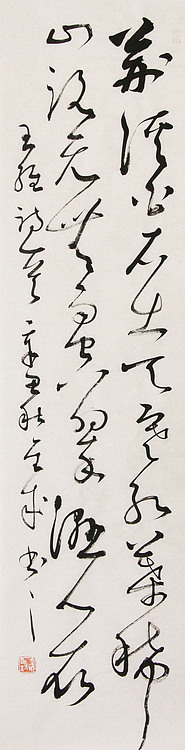 荊溪白石出天寒紅葉稀
山路元無雨空翠濕人衣
王維詩一首 辛丑秋 書之